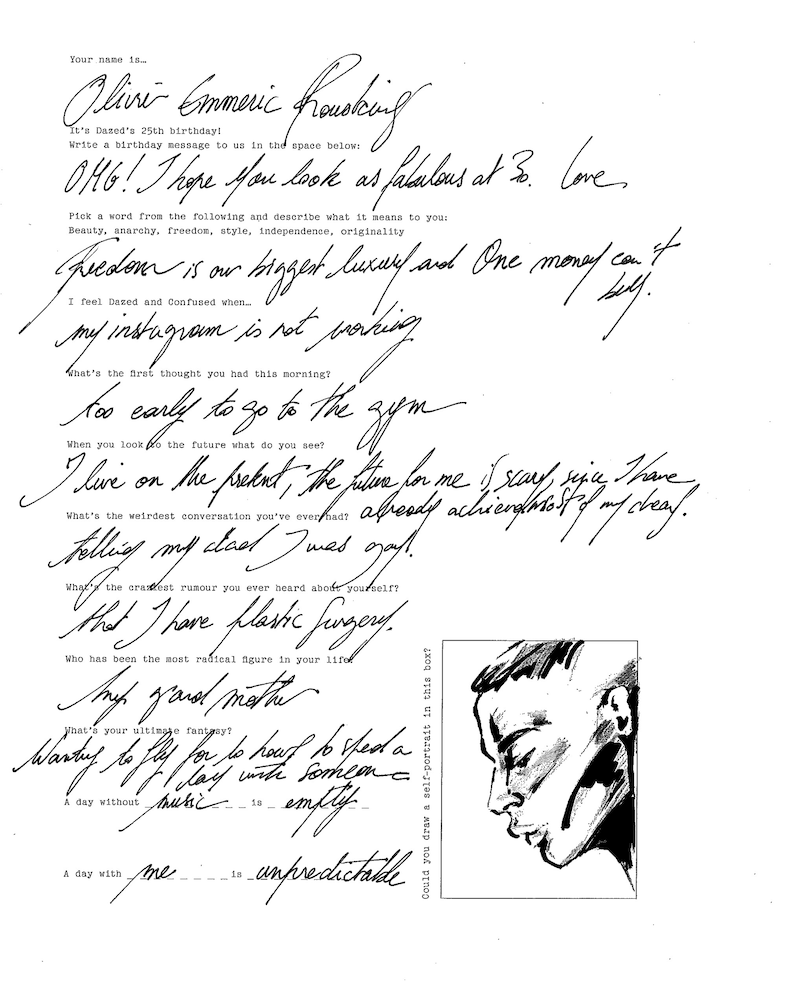 Your name is…
Olivier Emmeric Rousteing
It's Dazed's 25th birthday!
Write a birthday message to us in the space below:
OMG! I hope you look as fabulous at 30. love
Pick a word from the following and describe what it means to you:
Beauty, anarchy, freedom, style, independence, originality
freedom is our biggest luxury and One money can't
buy.
I feel Dazed and Confused when…
my instagram is not working
What's the first thought you had this morning?
too early to go to the gym
When you look to the future what do you see?
I live on the present, the future for me is scary, since I have
already achieved most of my
What's the weirdest conversation you've ever had?
telling my dad I was gay.
What's the craziest rumour you ever heard about yourself?
that I have plastic Surgery.
Who has been the most radical figure in your life?
my grand mother
What's your ultimate fantasy?
to fly for to spend a
day with someone
A day without music is empty
A day with me is unpredictable
Could you draw a self-portrait in this box?